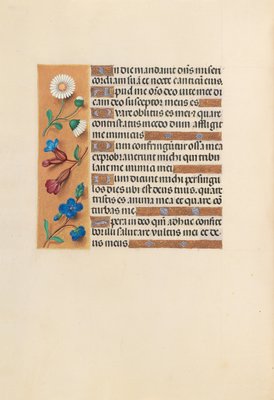 In die mandauit dn̄s miseri
cordiam suā et nocte canticū eius.
Apud me orō deo vite mee di
cam deo susceptor meus es
Quare oblitus es mei et quare
contristatus incedo dum affligit
me inimicus
Dum confringūtur ossa mea
exprobrauerunt michi qui tribu
lant me inimici mei
Dum dicunt michi per singu
los dies ubi est deus tuus. quare
tristis es anima mea et quare cō
turbas me
Spera in deo qm̄ adhuc confite
bor illi salutare vultus mei et de
us meus.